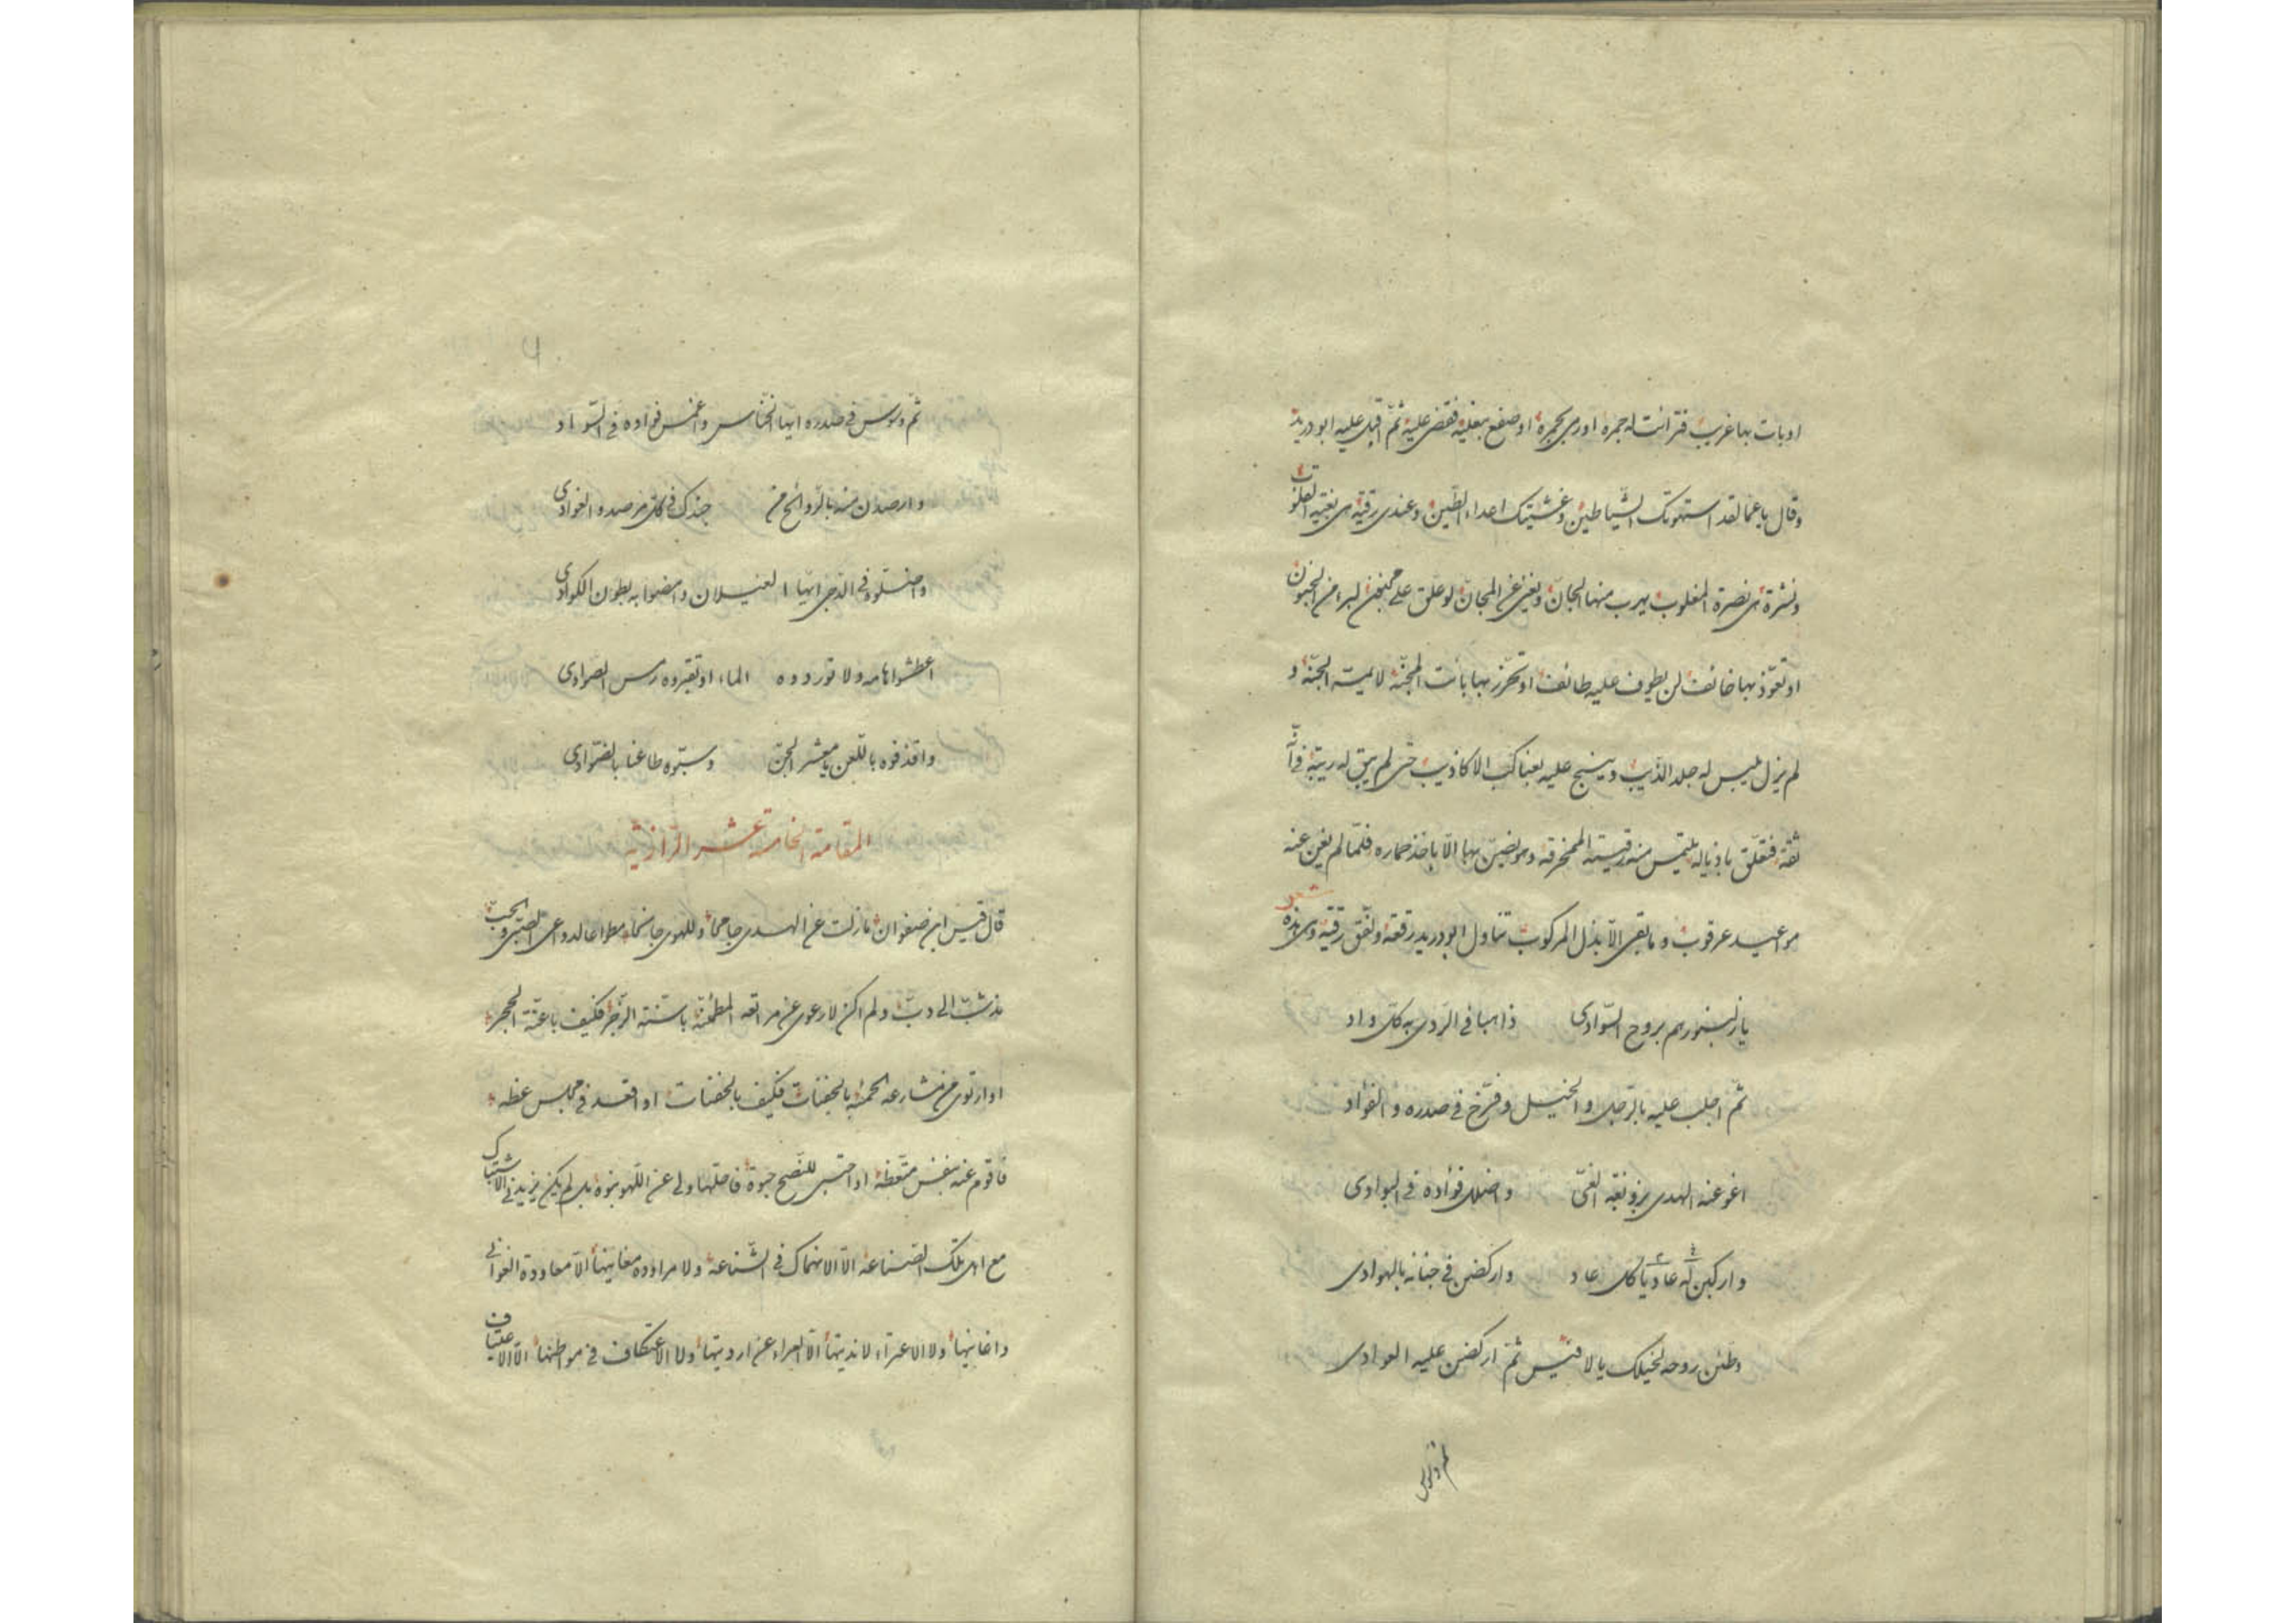 او بات بها غريب فترائت له جمره او رمي بجمرة او صفع بنعليه فقضى عليه ثم اقبل عليه ابو دريد
وقال يا عم لقد استهوتك الشياطين وغشيتك اعداء الطين وعندي رقية هي بغية
ونشرة هي نصرة المغلوب يهرب منها الجان ويغني عن المجان لو علق على مجنون لبرا من الجنون
او تعوذ بها خائف لن يطوف عليه طائف او تحرز بها بائت المجنه لا ميت الجنة و
لم يزل يلبس له جلد الذيب وينسج عليه بعناكب الاكاذيب حتى لم يبق له ريبة في انه
ثقة فتعلق باذياله يلتمس منه رقيته الممخرقه وهو يضن بها الا باخذ حماره فلما لم يغن عنه
مواعيد عرقوب وما بقى الا بذل المركوب تناول ابو دريد رقعة ولفق رقية وهي هذه
شعر
يا زلنبور هم بروح السوادى ذاهبا في الردى به كل واد
ثم اجلب عليه بالرجل والخيل وفرخ في صدره والفؤاد
اغو عنه الهدى بزوبعة الغى واضلل فؤاده في البوادى
واركبن له عاديا كل عاد واركضن في جنانه بالهوادى
وطئن روحه لخيلك يا لا قيس ثم اركضن عليه العوادى
ثم وسوس
ثم وسوس في صدره ايها الخناس واغمس فؤاده في السواد
وارصدن منه بالروائح من جندك في كل مرصد والغوادى
واضلوه في الدجى ايها الغيلان وامضوا به بطون الكوادى
اعطشوا هامه ولا توردوه الماء او تقبروه رمس الصوادى
واقذفوه باللعن يا معشر الجن وسبوه طاعنا بالضوادى
المقامة الخامسة عشر الرازية
قال قيس ابن صفوان ما زلت عن الهدى جامحا وللهوى جانحا مطواعا لدواعى الصبى والحب
مذ شب الى دب ولم اكن لارعوى عن مراتعه المطمئنة باسنة الزجر فكيف باعنة الحجر
او ارتوى من مشارعه الحمئة بالجفنات فكيف بالحفنات او اقعد في مجلس عظه
فاقوم عنه بنفس متعظة او احتبى للنصح حبوة فاحلها ولى عن اللهو نبوه بل لم يكن يزيدني الاشتباك
مع اهل تلك الصناعة الا الانهماك في الشناعة ولا مراودة مغانيها الا معاودة الغوانى
واغانيها ولا الاعتراء لانديتها الا العراء عن ارديتها ولا الاعتكاف في مواطنها الا الاعتياف